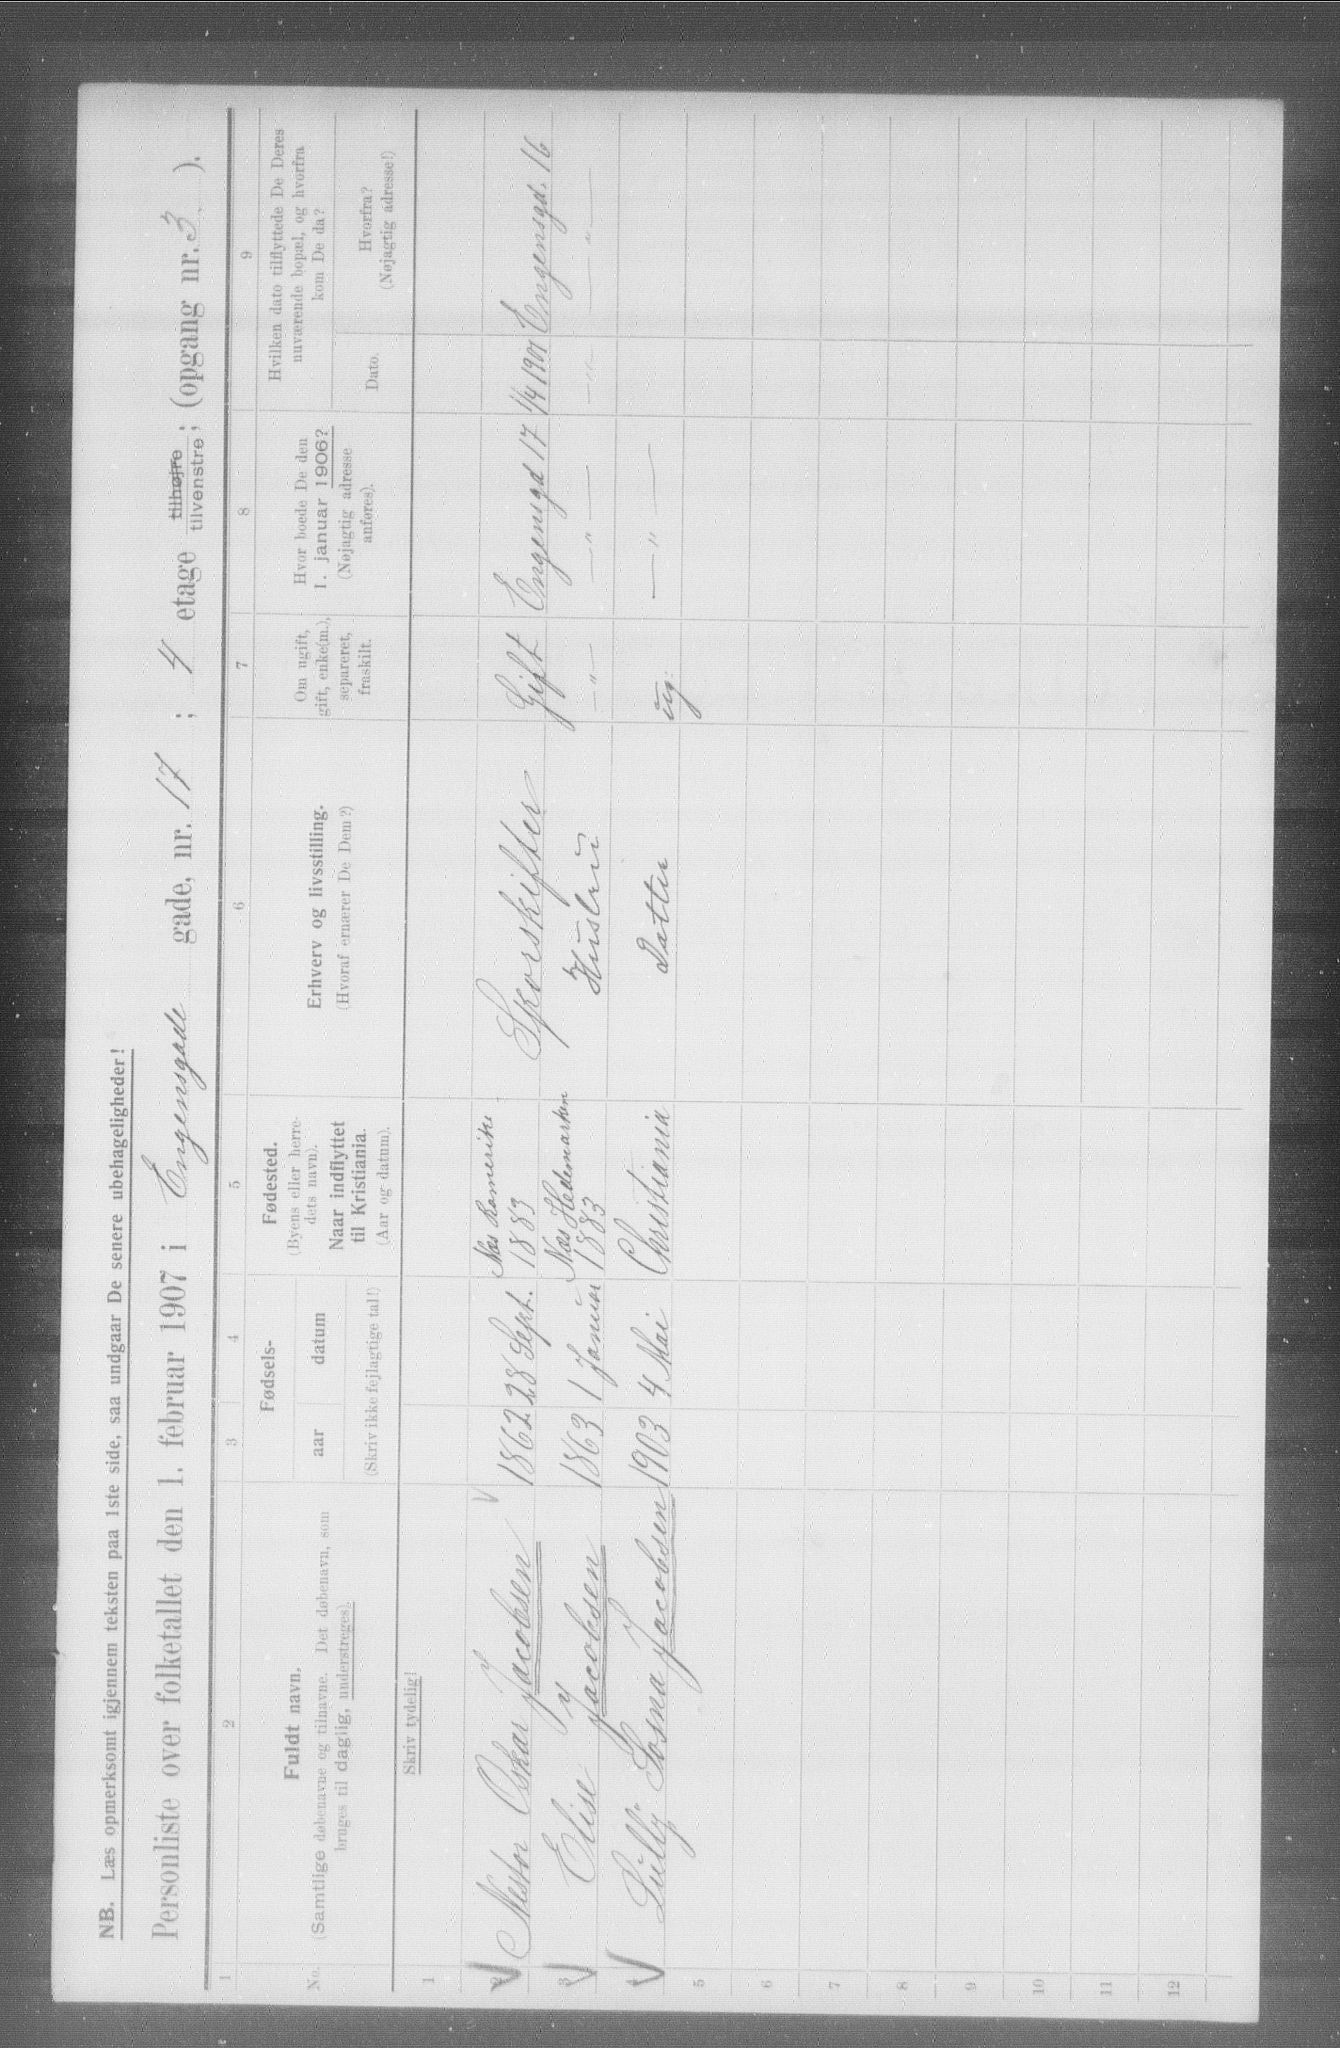 NB. Læs opmerksomt igjennem teksten paa 1ste side, saa undgaar De senere ubehageligheder!
Personliste over folketallet den 1. februar 1907 i Engensgade gade, nr. 17 ; 4 etage tilhøjre tilvenstre ; (opgang nr. 3 ).
1 2 3 4 5 6 7 8 9
No. Fuldt navn,
(Samtlige døbenavne og tilnavne. Det døbenavn, som
bruges til daglig, understreges).
Fødsels-
aar datum
(Skriv ikke fejlagtige tal!)
Fødested.
(Byens eller herre-
dets navn).
Naar indflyttet
til Kristiania.
(Aar og datum).
Erhverv og livsstilling.
(Hvoraf ernærer De Dem?)
Om ugift,
gift, enke(m.),
separeret,
fraskilt.
Hvor boede De den
1. januar 1906?
(Nøjagtig adresse
anføres).
Hvilken dato tilflyttede De Deres
nuværende bopæl, og hvorfra
kom De da?
Dato.
Hvorfra?
(Nøjagtig adresse!)
Skriv tydelig!
1
2 Nestor Oskar Jacobsen 1862 28 Sept. Næs Romerike 1883 Sporskifter Gift Engensgd 17 1/4 1901 Engensgd. 16
3 Elise Jacobsen 1863 1 Januar Næs Hedemarken 1883 Hustru — " — — " — — " — — " —
4 Lully Sosna Jacobsen 1903 4 Mai Christiania Datter ug. — " —
5
6
7
8
9
10
11
12